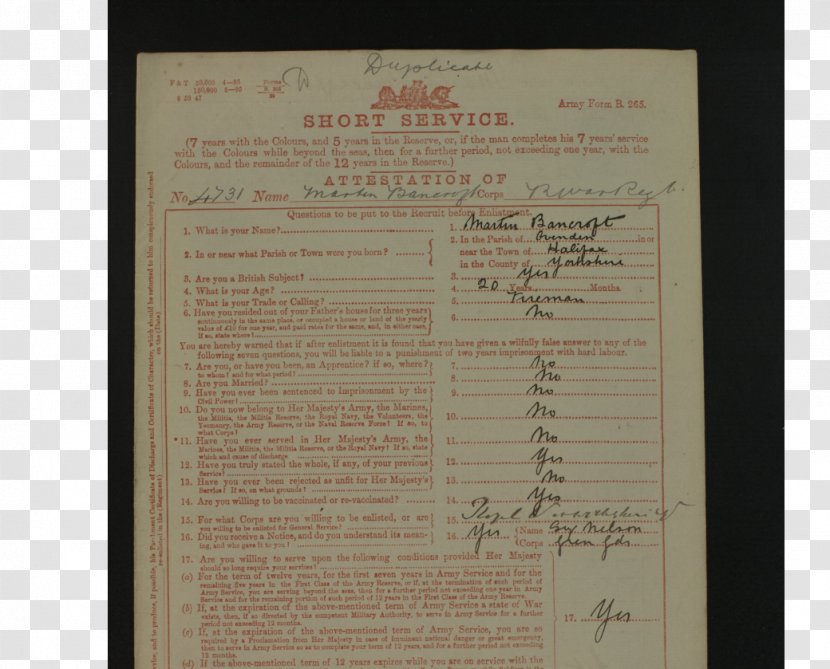 Duplicate
F & T 50,000 4—95
150,000 6—95
Army Form B. 265.
SHORT SERVICE.
(7 years with the Colours, and 5 years in the Reserve, or, if the man completes his 7 years' service
with the Colours while beyond the seas, then for a further period, not exceeding one year, with the
Colours, and the remainder of the 12 years in the Reserve.)
ATTESTATION OF
No. 4731 Name Martin Bancroft Corps R War Regt.
Questions to be put to the Recruit before Enlistment.
1. What is your Name? 1. Martin Bancroft
2. In or near what Parish or Town were you born? 2. In the Parish of Ovenden in or
near the Town of Halifax
in the County of Yorkshire
3. Are you a British Subject? 3. Yes
4. What is your Age? 4. 20 Years, Months.
5. What is your Trade or Calling? 5. Fireman
6. Have you resided out of your Father's house for three years
continuously in the same place, or occupied a house or land of the yearly
value of £10 for one year, and paid rates for the same, and, in either case,
If so, state where? 6. No
You are hereby warned that if after enlistment it is found that you have given a wilfully false answer to any of the
following seven questions, you will be liable to a punishment of two years imprisonment with hard labour.
7. Are you, or have you been, an Apprentice? if so, where?
to whom? and for what period? 7. No
8. Are you Married? 8. No
9. Have you ever been sentenced to Imprisonment by the
Civil Power? 9. No
10. Do you now belong to Her Majesty's Army, the Marines,
the Militia, the Militia Reserve, the Royal Navy, the Volunteers, the
Yeomanry, the Army Reserve, or the Naval Reserve Force? If so, to
what Corps? 10. No
*11. Have you ever served in Her Majesty's Army, the
Marines, the Militia, the Militia Reserve, or the Royal Navy? If so, state
which and cause of discharge 11. No
12. Have you truly stated the whole, if any, of your previous
Service? 12. Yes
13. Have you ever been rejected as unfit for Her Majesty's
Service? If so, on what grounds? 13. No
14. Are you willing to be vaccinated or re-vaccinated? 14. Yes
15. For what Corps are you willing to be enlisted, or are
you willing to be enlisted for General Service? 15. Royal Warwickshire Regt
16. Did you receive a Notice, and do you understand its mean-
ing, and who gave it to you? 16. Yes Name Nelson
Corps Gren Gds
17. Are you willing to serve upon the following conditions provided Her Majesty
should so long require your services?
(a) For the term of twelve years, for the first seven years in Army Service and for the
remaining five years in the First Class of the Army Reserve, or if, at the termination of such period of
Army Service, you are serving beyond the seas, then for a further period not exceeding one year in Army
Service and for the remaining portion of such period of 12 years in the First Class of the Army Reserve.
(b) If, at the expiration of the above-mentioned term of Army Service a state of War
exists, then, if so directed by the competent Military Authority, to serve in Army Service for a further
period not exceeding 12 months. 17. Yes
(c) If, at the expiration of the above-mentioned term of Army Service, you are so
required by a Proclamation from Her Majesty in case of imminent national danger or great emergency,
then to serve in Army Service so as to complete your term of 12 years, and for a further period not
exceeding 12 months.
(d) If the above-mentioned term of 12 years expires while you are on service with the